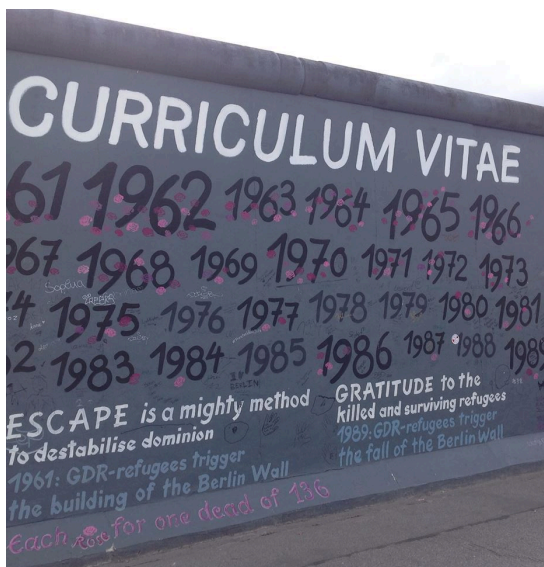 CURRICULUM VITAE
61 1962 1963 1964 1965 1966
67 1968 1969 1970 1971 1972 1973
74 1975 1976 1977 1978 1979 1980 1981
2 1983 1984 1985 1986 1987 1988 1989
ESCAPE is a mighty method
to destabilise dominion
1961: GDR-refugees trigger
the building of the Berlin Wall
GRATITUDE to the
killed and surviving refugees
1989: GDR-refugees trigger
the fall of the Berlin Wall
Each rose for one dead of 136
Sophia